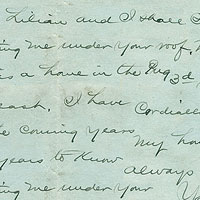 Lilian and I shall
ing me under your roof.
as a home in the
eash. I have Cordially
e coming years
My ho
years to know
always
ing me under your
Yo